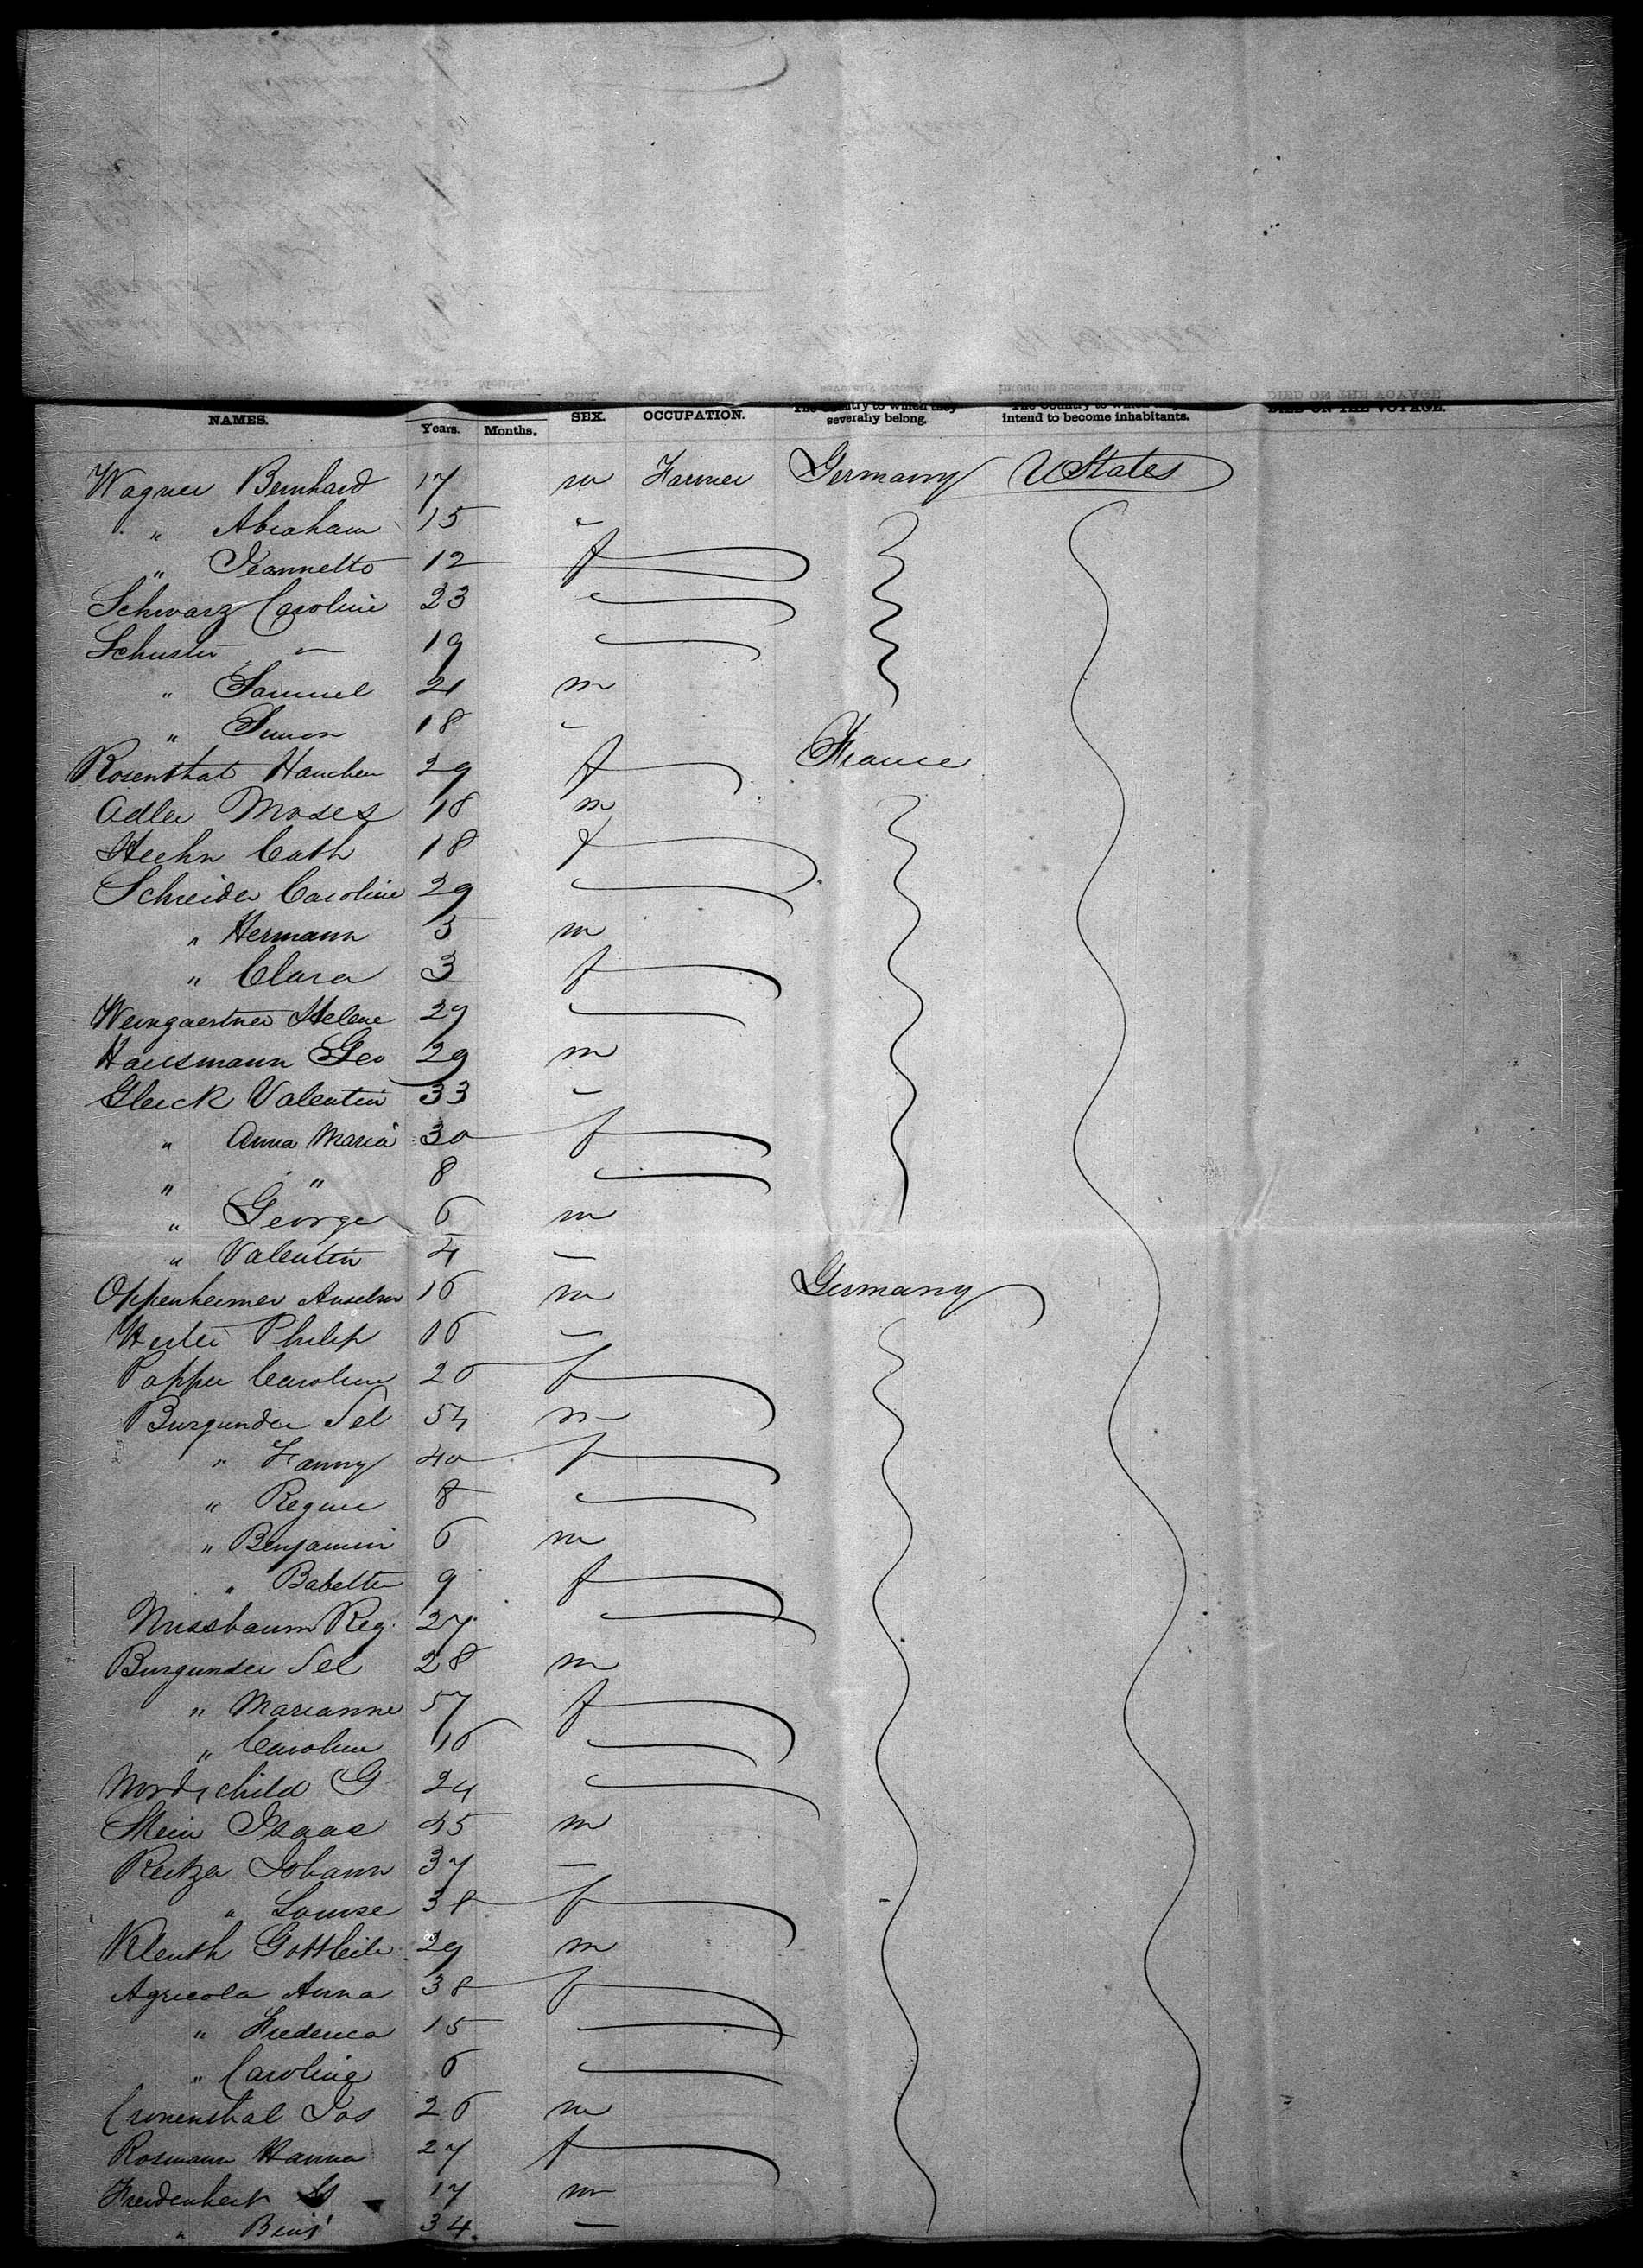 NAMES. Years. Months. SEX. OCCUPATION. The Country to which they severally belong. The Country to which they intend to become inhabitants. DIED ON THE VOYAGE.
Wagner Bernhard 17 m Farmer Germany UStates
" Abraham 15 "
" Jeannette 12 f
Schwarz Caroline 23 "
Schuster " 19 "
" Samuel 21 m
" Simon 18 "
Rosenthal Hanchen 29 f France
Adler Moses 18 m
Hechn Cath 18 f
Schreider Caroline 29 "
" Hermann 5 m
" Clara 3 f
Weingaertner Helene 27 "
Hausmann Geo 29 m
Gleick Valentin 33 "
" Anna Maria 30 f
" " 8 "
" George 6 m
" Valentin 4 "
Oppenheimer Anselm 16 m Germany
Philip 16 "
Popper Caroline 20 f
Burgunder Sel 54 m
" Fanny 40 f
" Regine 8 "
" Benjamin 6 m
" Babette 9 f
Nussbaum Reg. 27 "
Burgunder Sel 28 m
" Marianne 57 f
" Caroline 16 "
Nordschild G 24 "
Stein Isaac 45 m
Reitza Johann 37 "
" Louise 38 f
Kleuth Gottleib 29 m
Agricola Anna 38 f
" Frederica 15 "
" Caroline 6 "
Cronenthal Jos 26 m
Rosmann Hanna 27 f
17 m
" Benj 34 "